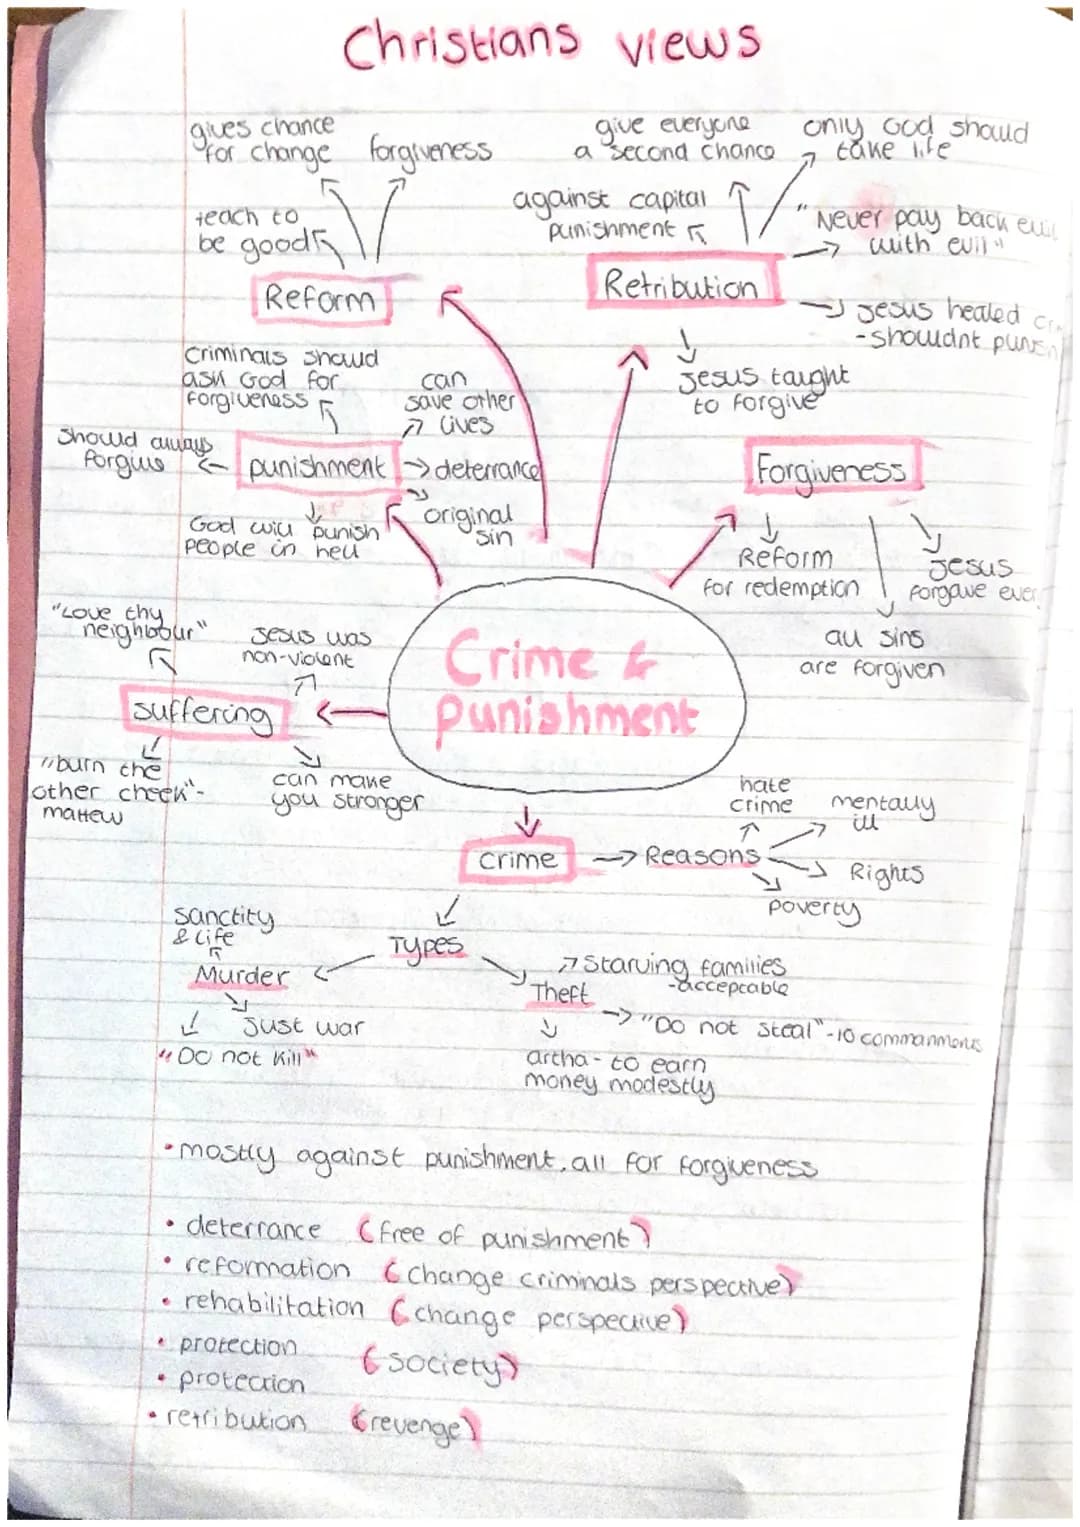 Christians views
gives chance
for change
forgiveness
teach to
be good
Reform
give everyone
a second chance
only God should
take life
against capital
punishment
"Never pay back evil
with evil"
Retribution
Jesus healed
-shouldnt punish
Jesus taught
to forgive
criminals should
ask God for
forgiveness
can
save other
lives
should always
forgive
punishment
deterrance
original
sin
God will punish
people in hell
Forgiveness
Reform
for redemption
Jesus
forgave
all sins
are forgiven
Crime &
punishment
"Love thy
neighbour"
Jesus was
non-violent
suffering
"burn the
other cheek"-
mattew
can make
you stronger
crime
Reasons
hate
crime
mentally
ill
Rights
poverty
Types
sanctity
& life
Murder
Just war
"Do not kill"
Theft
Starving families
-acceptable
"Do not steal"-10 commanments
artha - to earn
money modestly
• mostly against punishment, all for forgiveness
• deterrance (free of punishment)
• reformation (change criminals perspective)
• rehabilitation (change perspective)
• protection
(society)
• protection
• retribution (revenge)